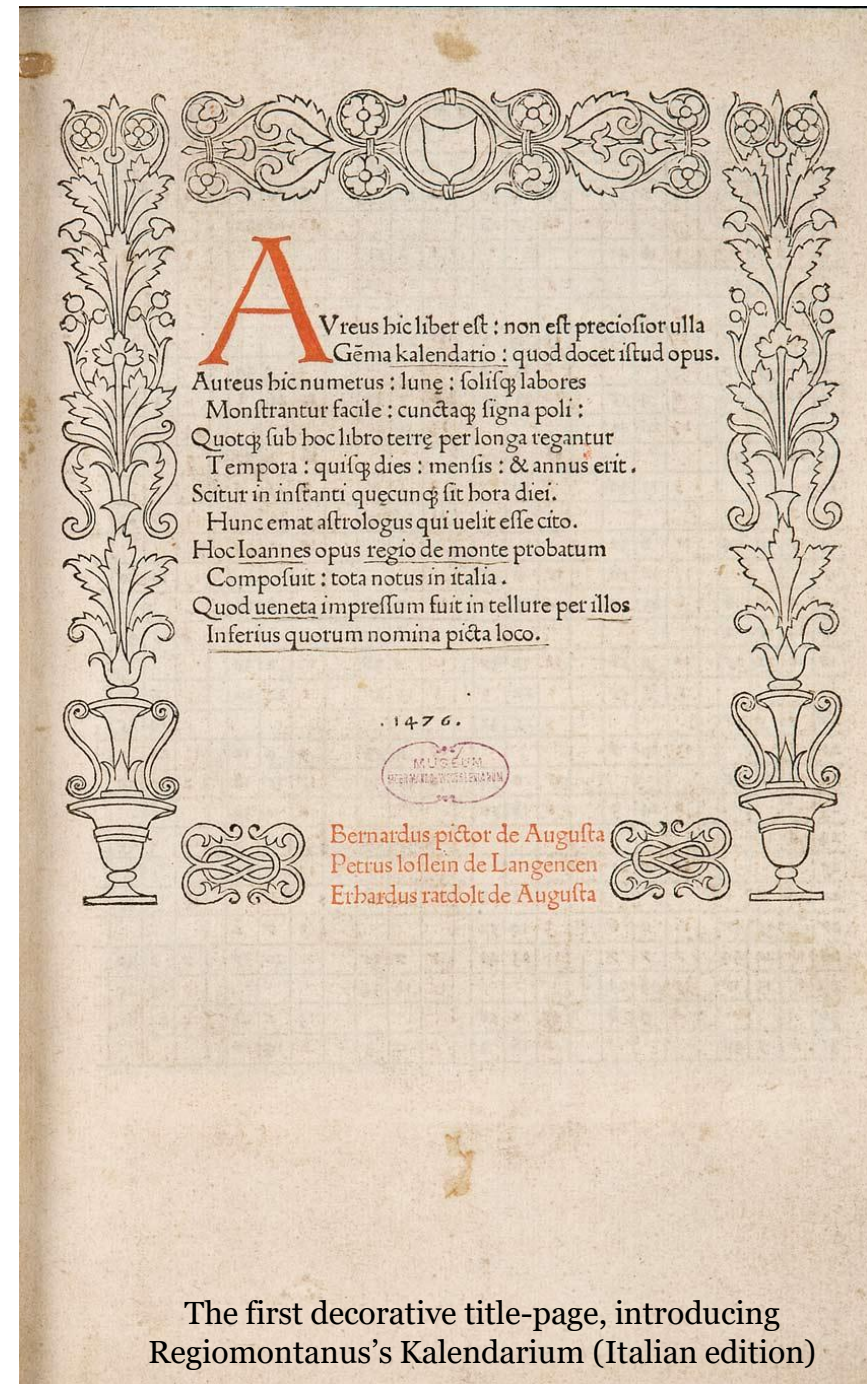 AVreus hic liber eſt : non eſt precioſior ulla
Gēma kalendario : quod docet iſtud opus.
Aureus hic numerus : lunę : ſoliſqꝫ labores
Monſtrantur facile : cunctaqꝫ ſigna poli :
Quotqꝫ ſub hoc libro terrę per longa regantur
Tempora : quiſqꝫ dies : menſis : & annus erit .
Scitur in inſtanti quęcunqꝫ ſit hora diei.
Hunc emat aſtrologus qui uelit eſſe cito.
Hoc Ioannes opus regio de monte probatum
Compoſuit : tota notus in italia .
Quod ueneta impreſſum fuit in tellure per illos
Inferius quorum nomina picta loco.
.1476.
MUSEUM
Bernardus pictor de Auguſta
Petrus loſlein de Langencen
Erhardus ratdolt de Auguſta
The first decorative title-page, introducing
Regiomontanus’s Kalendarium (Italian edition)